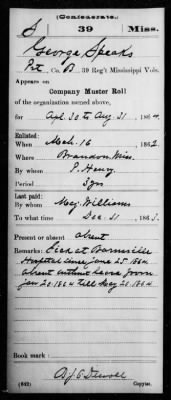 (Confederate.)
S 39 Miss.
George Speaks
Pvt, Co. B, 39 Reg't Mississippi Vols.
Appears on
Company Muster Roll
of the organization named above,
for Apl. 30 to Aug 31, 1864.
Enlisted:
When Mch. 16, 1862.
Where Brandon Miss.
By whom P. Henry.
Period 3 yrs
Last paid:
By whom Maj. Williams
To what time Dec. 31, 1863.
Present or absent absent
Remarks: Sick at Barnesville
Hospital since June 25 1864
absent without leave from
Jan 20 1864 till May 20 1864
Book mark:
(642) Copyist.